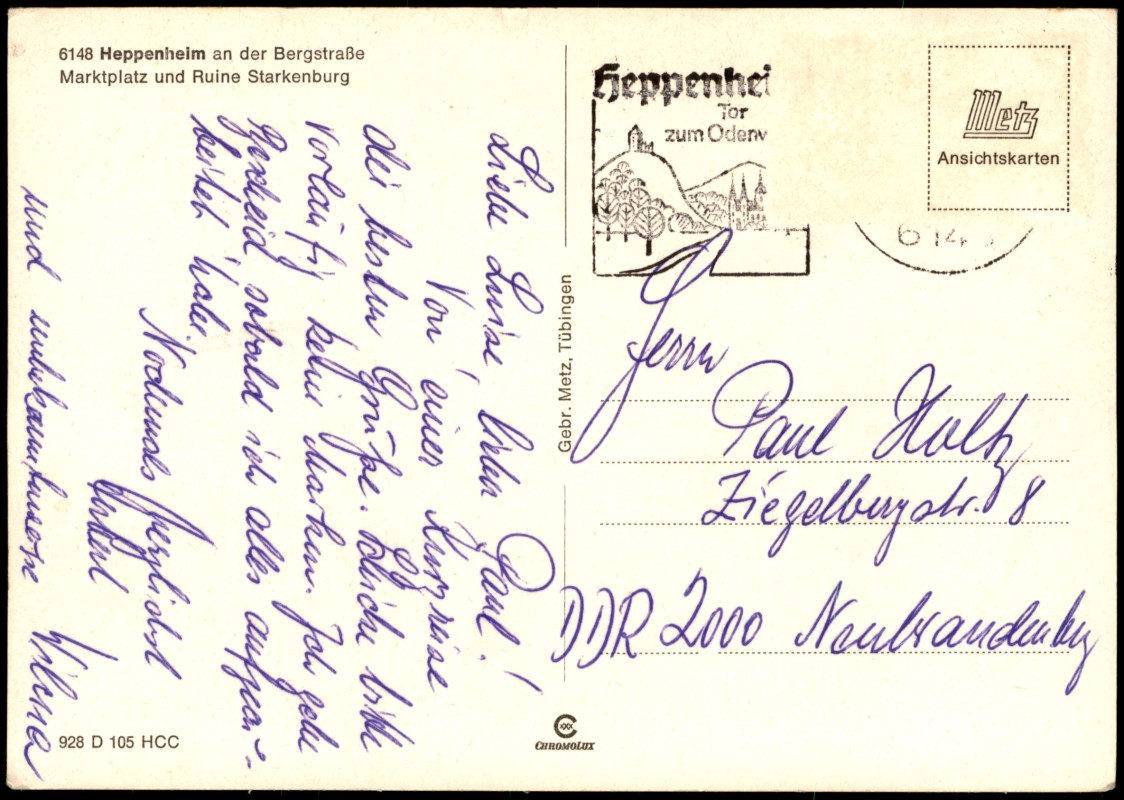 6148 Heppenheim an der Bergstraße
Marktplatz und Ruine Starkenburg
Liebe Luise, lieber Paul!
Von einer Kurzreise
die besten Grüße. Schicke bitte
vorläufig keine Marken. Ich gebe
Bescheid sobald ich alles aufgear-
beitet habe.
Nochmals herzlichst
Herbert
und unbekannterweise Wilma
928 D 105 HCC
Gebr. Metz, Tübingen
CHROMOLUX
Heppenhei
Tor
zum Odenw
Metz
Ansichtskarten
Herrn
Paul Holtz
Ziegelbergstr. 8
DDR 2000 Neubrandenburg